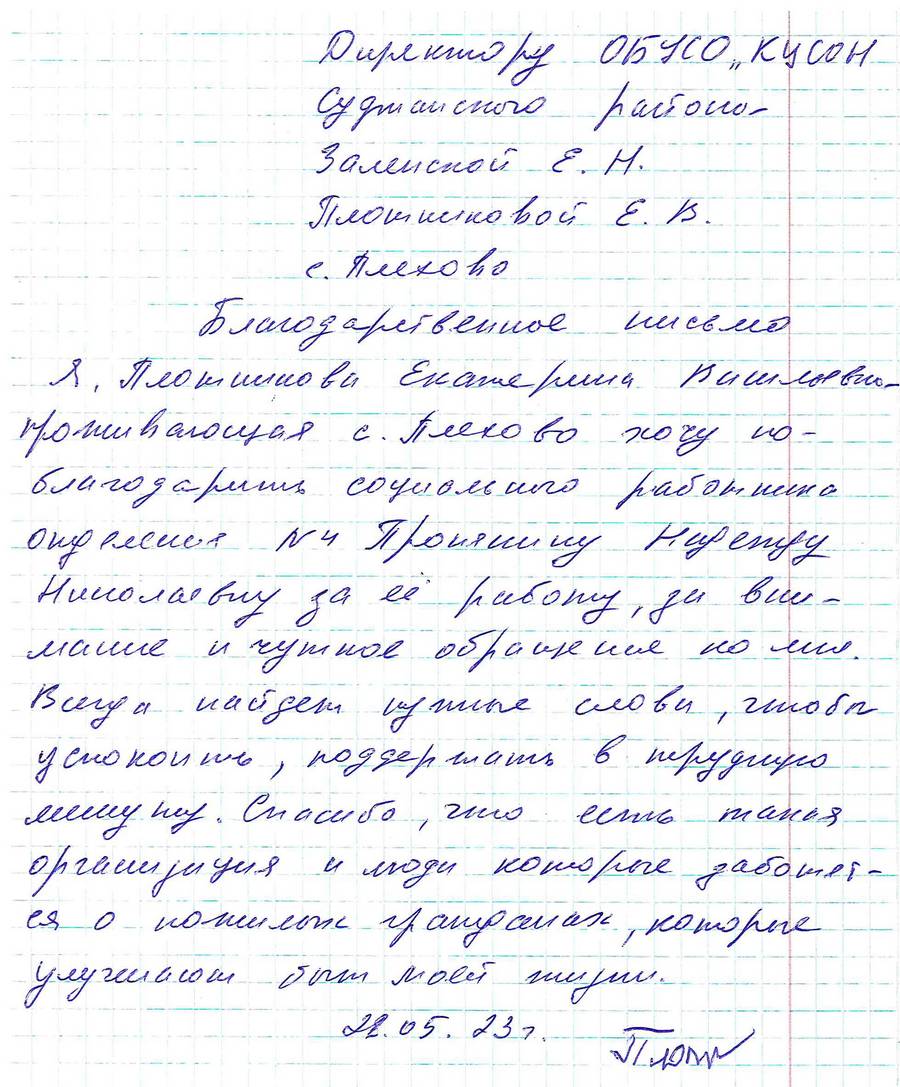 Директору ОБУСО „КЦСОН
Суджанского района
Заленской Е. Н.
Плотниковой Е. В.
с. Плехово
Благодарственное письмо
Я, Плотникова Екатерина
проживающая с. Плехово хочу по-
благодарить социального работника
отделения №4 Надежду
Николаевну за её работу, за вни-
мание и чуткое обращение ко мне.
Всегда найдет нужные слова, чтобы
успокоить, поддержать в трудную
минуту. Спасибо, что есть такая
организация и люди которые заботят-
ся о пожилых гражданах, которые
улучшают быт моей жизни.
05. 23г.